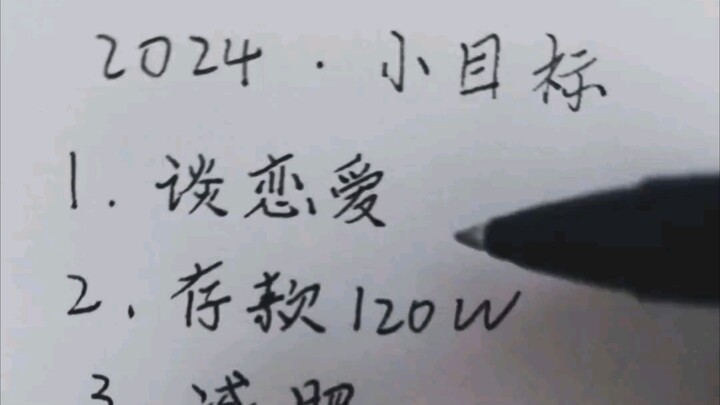 2024 · 小目标
1. 谈恋爱
2. 存款120W
3. 减肥